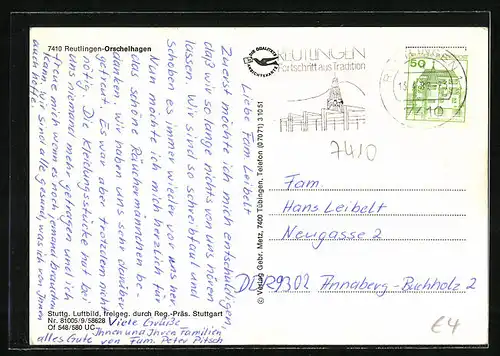 7410 Reutlingen-Orschelhagen
Liebe Fam. Leibelt
Zuerst möchte ich mich entschuldigen,
daß wir so lange nichts von uns hören
lassen. Wir sind so schreibfaul und
schoben es immer wieder vor uns her.
Nun möchte ich mich herzlich für
das schöne Räuchermännchen be-
danken. Wir haben uns sehr darüber
gefreut. Es war aber trotzdem nicht
nötig. Die Kleidungsstücke hat bei
uns niemand mehr getragen und ich
freue mich wenn es noch jemand brauchen
kann. Wir sind alle gesund, was ich von Ihnen
auch hoffe.
Viele Grüße
Ihnen und Ihren Familien
alles Gute von Fam. Peter Pitsch
Stuttg. Luftbild, freigeg. durch Reg.-Präs. Stuttgart
Nr. 81005/9/58628
Of 548/580 UC
© Verlag Gebr. Metz, 7400 Tübingen, Telefon (07071) 31051
DIE QUALITÄTS
ANSICHTSKARTE
REUTLINGEN
Fortschritt aus Tradition
7410
50
7410
Fam.
Hans Leibelt
Neugasse 2
DDR 9302 Annaberg-Buchholz 2
€4